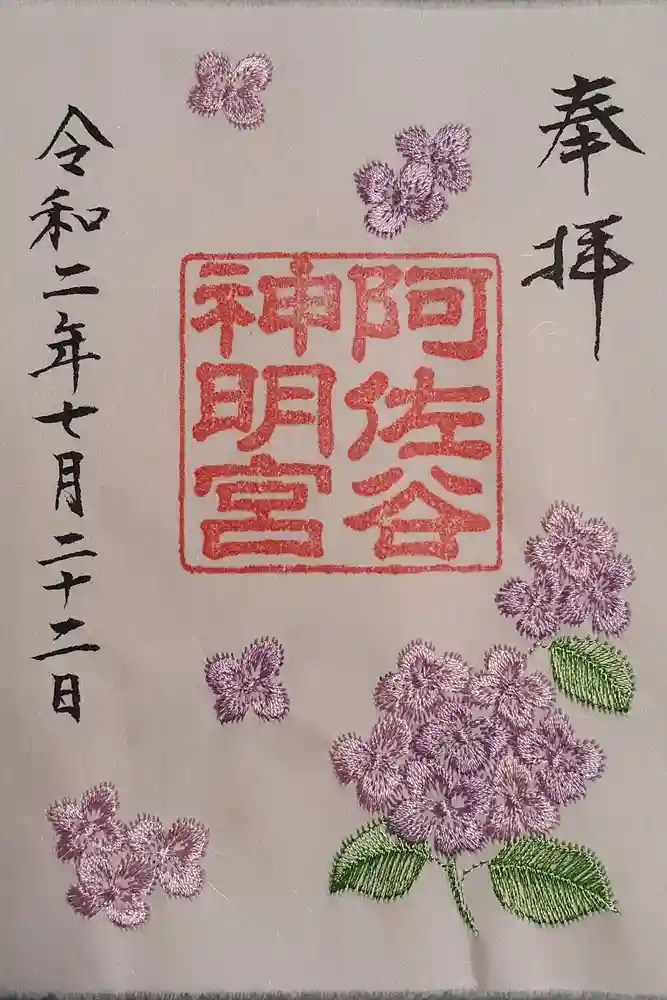 奉拝
阿佐谷
神明宮
令和二年七月二十二日